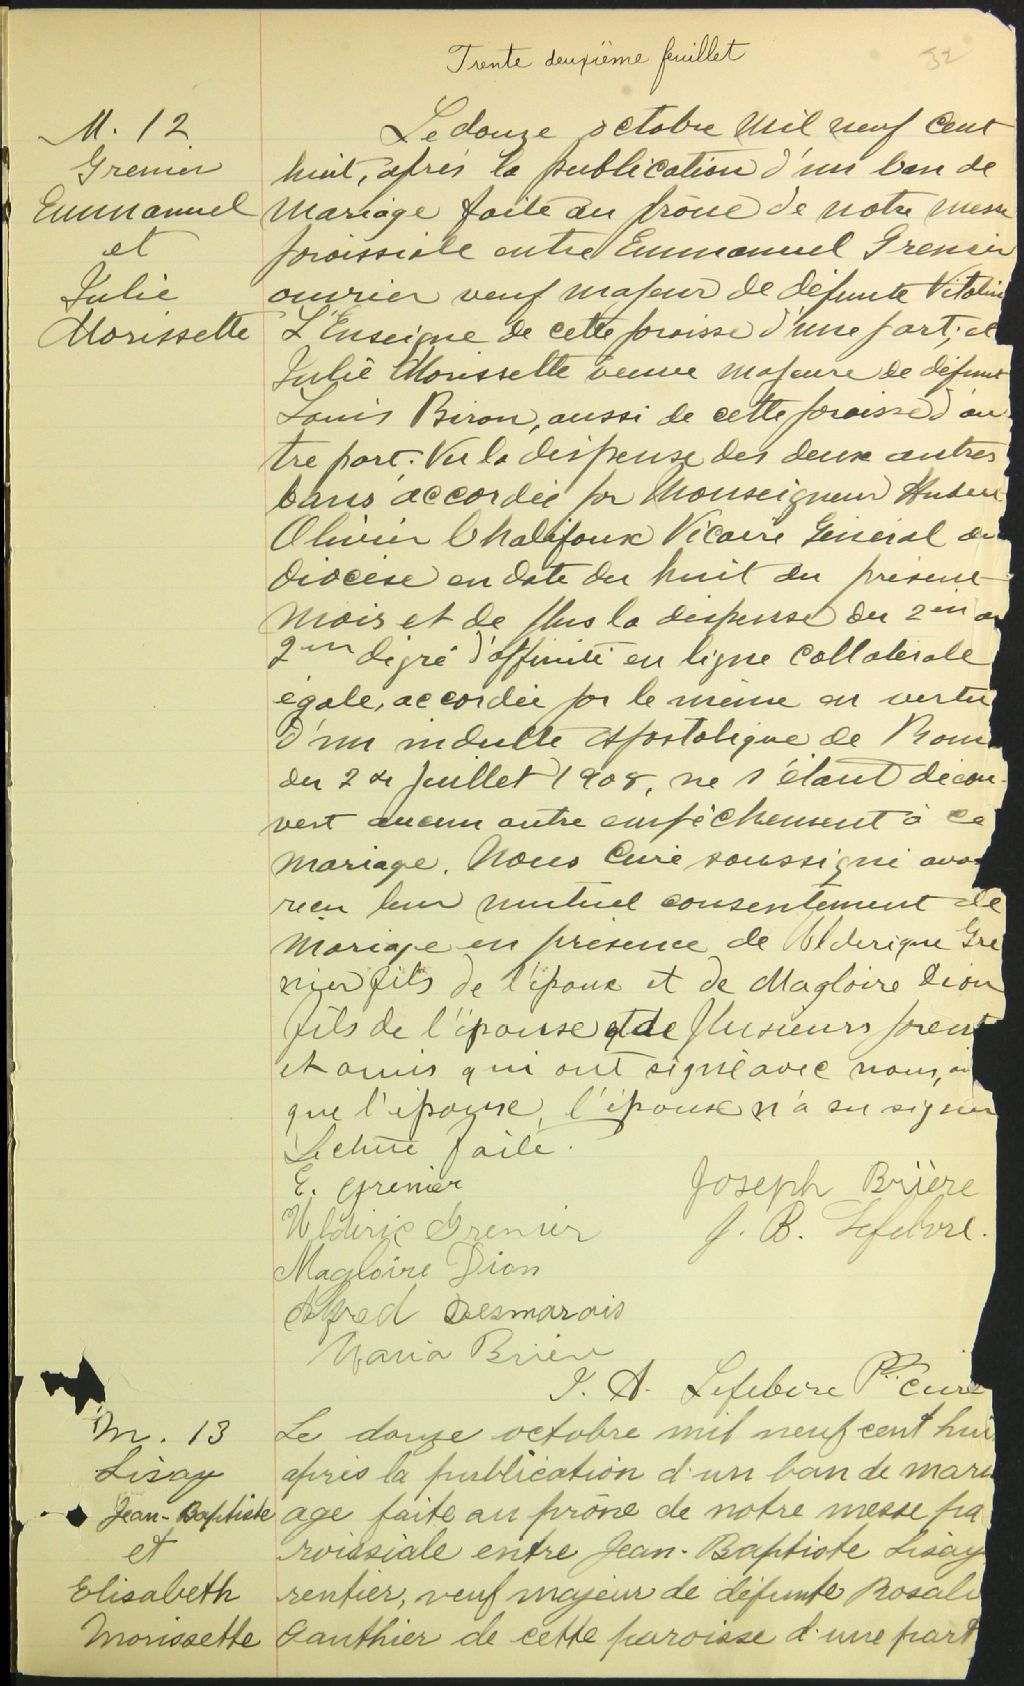 Trente deuxième feuillet
32
M. 12
Grenier
Emmanuel
et
Julie
Morissette
Le douze octobre mil neuf cent
huit, après la publication d'un ban de
mariage faite au prône de notre messe
paroissiale entre Emmanuel Grenier
ouvrier veuf majeur de défunte Vitaline
L'Enseigne de cette paroisse d'une part; et
Julie Morissette veuve majeure de défunt
Louis Biron, aussi de cette paroisse d'au
tre part. Vu la dispense des deux autres
bans accordée par Monseigneur
Olivier Chalifoux Vicaire Général du
diocèse en date du huit du présent
mois et de plus la dispense du 2èm au
2èm degré d'affinité en ligne collatérale
égale, accordée par le même en vertu
d'un indulte apostolique de Rome
du 2 de juillet 1908, ne s'étant décou-
vert aucun autre empêchement à ce
mariage. Nous Curé soussigné avons
reçu leur mutuel consentement de
mariage en présence de Ulderique Gre
nier fils de l'époux et de Magloire Dion
fils de l'épouse et de plusieurs parents
et amis qui ont signé avec nous,
que l'épouse, l'époux n'a su signer
Lecture faite.
E. Grenier
Joseph Brière
Ulderic Grenier
J. B. Lefebvre.
Magloire Dion
Alfred Desmarais
Maria Brière
J. A. Lefebvre Ptre curé
M. 13
Lisay
Jean-Baptiste
et
Elisabeth
Morissette
Le douze octobre mil neuf cent hui
après la publication d'un ban de mari
age faite au prône de notre messe pa
roissiale entre Jean-Baptiste Lisay
rentier, veuf majeur de défunte Rosali
Gauthier de cette paroisse d'une part